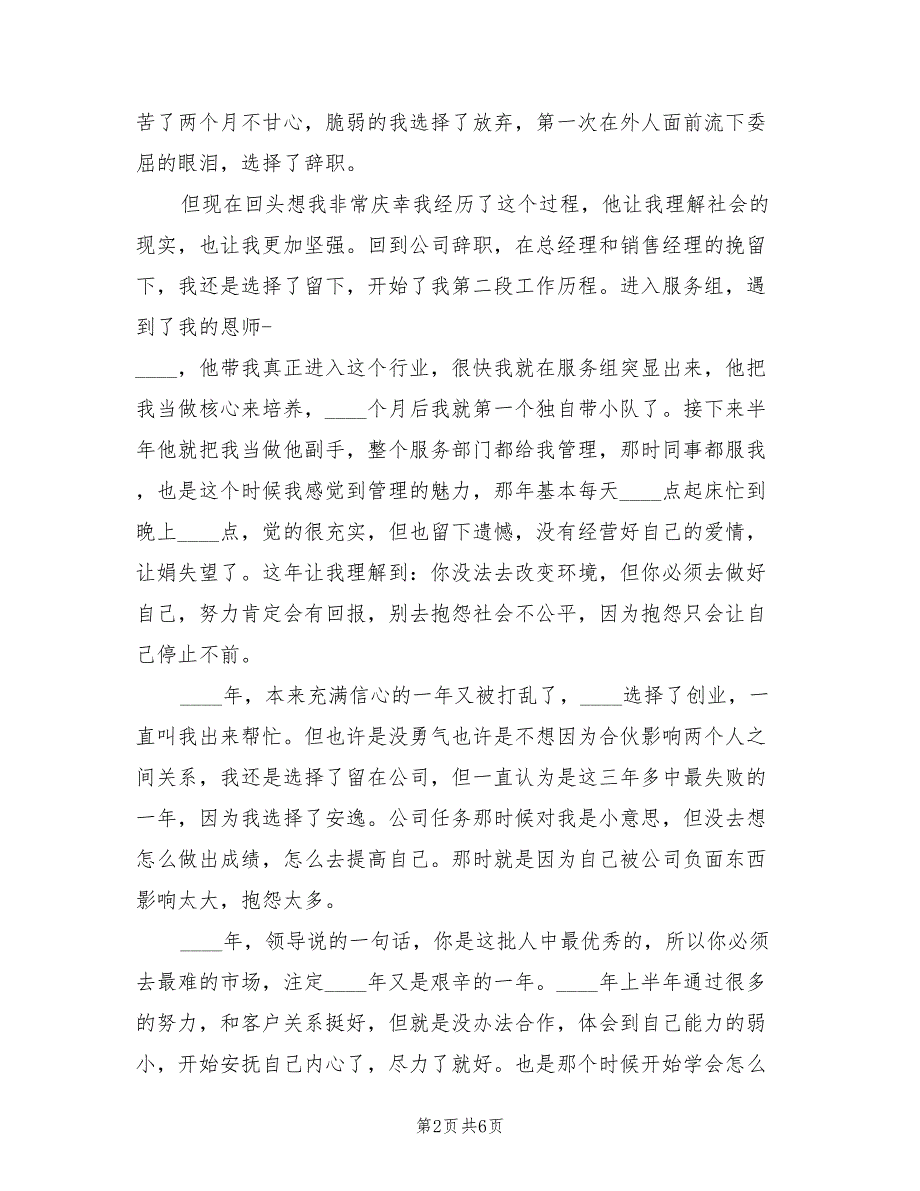 苦了两个月不甘心，脆弱的我选择了放弃，第一次在外人面前流下委
屈的眼泪，选择了辞职。
但现在回头想我非常庆幸我经历了这个过程，他让我理解社会的
现实，也让我更加坚强。回到公司辞职，在总经理和销售经理的挽留
下，我还是选择了留下，开始了我第二段工作历程。进入服务组，遇
到了我的恩师-
____，他带我真正进入这个行业，很快我就在服务组突显出来，他把
我当做核心来培养，____个月后我就第一个独自带小队了。接下来半
年他就把我当做他副手，整个服务部门都给我管理，那时同事都服我
，也是这个时候我感觉到管理的魅力，那年基本每天____点起床忙到
晚上____点，觉的很充实，但也留下遗憾，没有经营好自己的爱情，
让娟失望了。这年让我理解到：你没法去改变环境，但你必须去做好
自己，努力肯定会有回报，别去抱怨社会不公平，因为抱怨只会让自
己停止不前。
____年，本来充满信心的一年又被打乱了，____选择了创业，一
直叫我出来帮忙。但也许是没勇气也许是不想因为合伙影响两个人之
间关系，我还是选择了留在公司，但一直认为是这三年多中最失败的
一年，因为我选择了安逸。公司任务那时候对我是小意思，但没去想
怎么做出成绩，怎么去提高自己。那时就是因为自己被公司负面东西
影响太大，抱怨太多。
____年，领导说的一句话，你是这批人中最优秀的，所以你必须
去最难的市场，注定____年又是艰辛的一年。____年上半年通过很多
的努力，和客户关系挺好，但就是没办法合作，体会到自己能力的弱
小，开始安抚自己内心了，尽力了就好。也是那个时候开始学会怎么
第2页 共6页